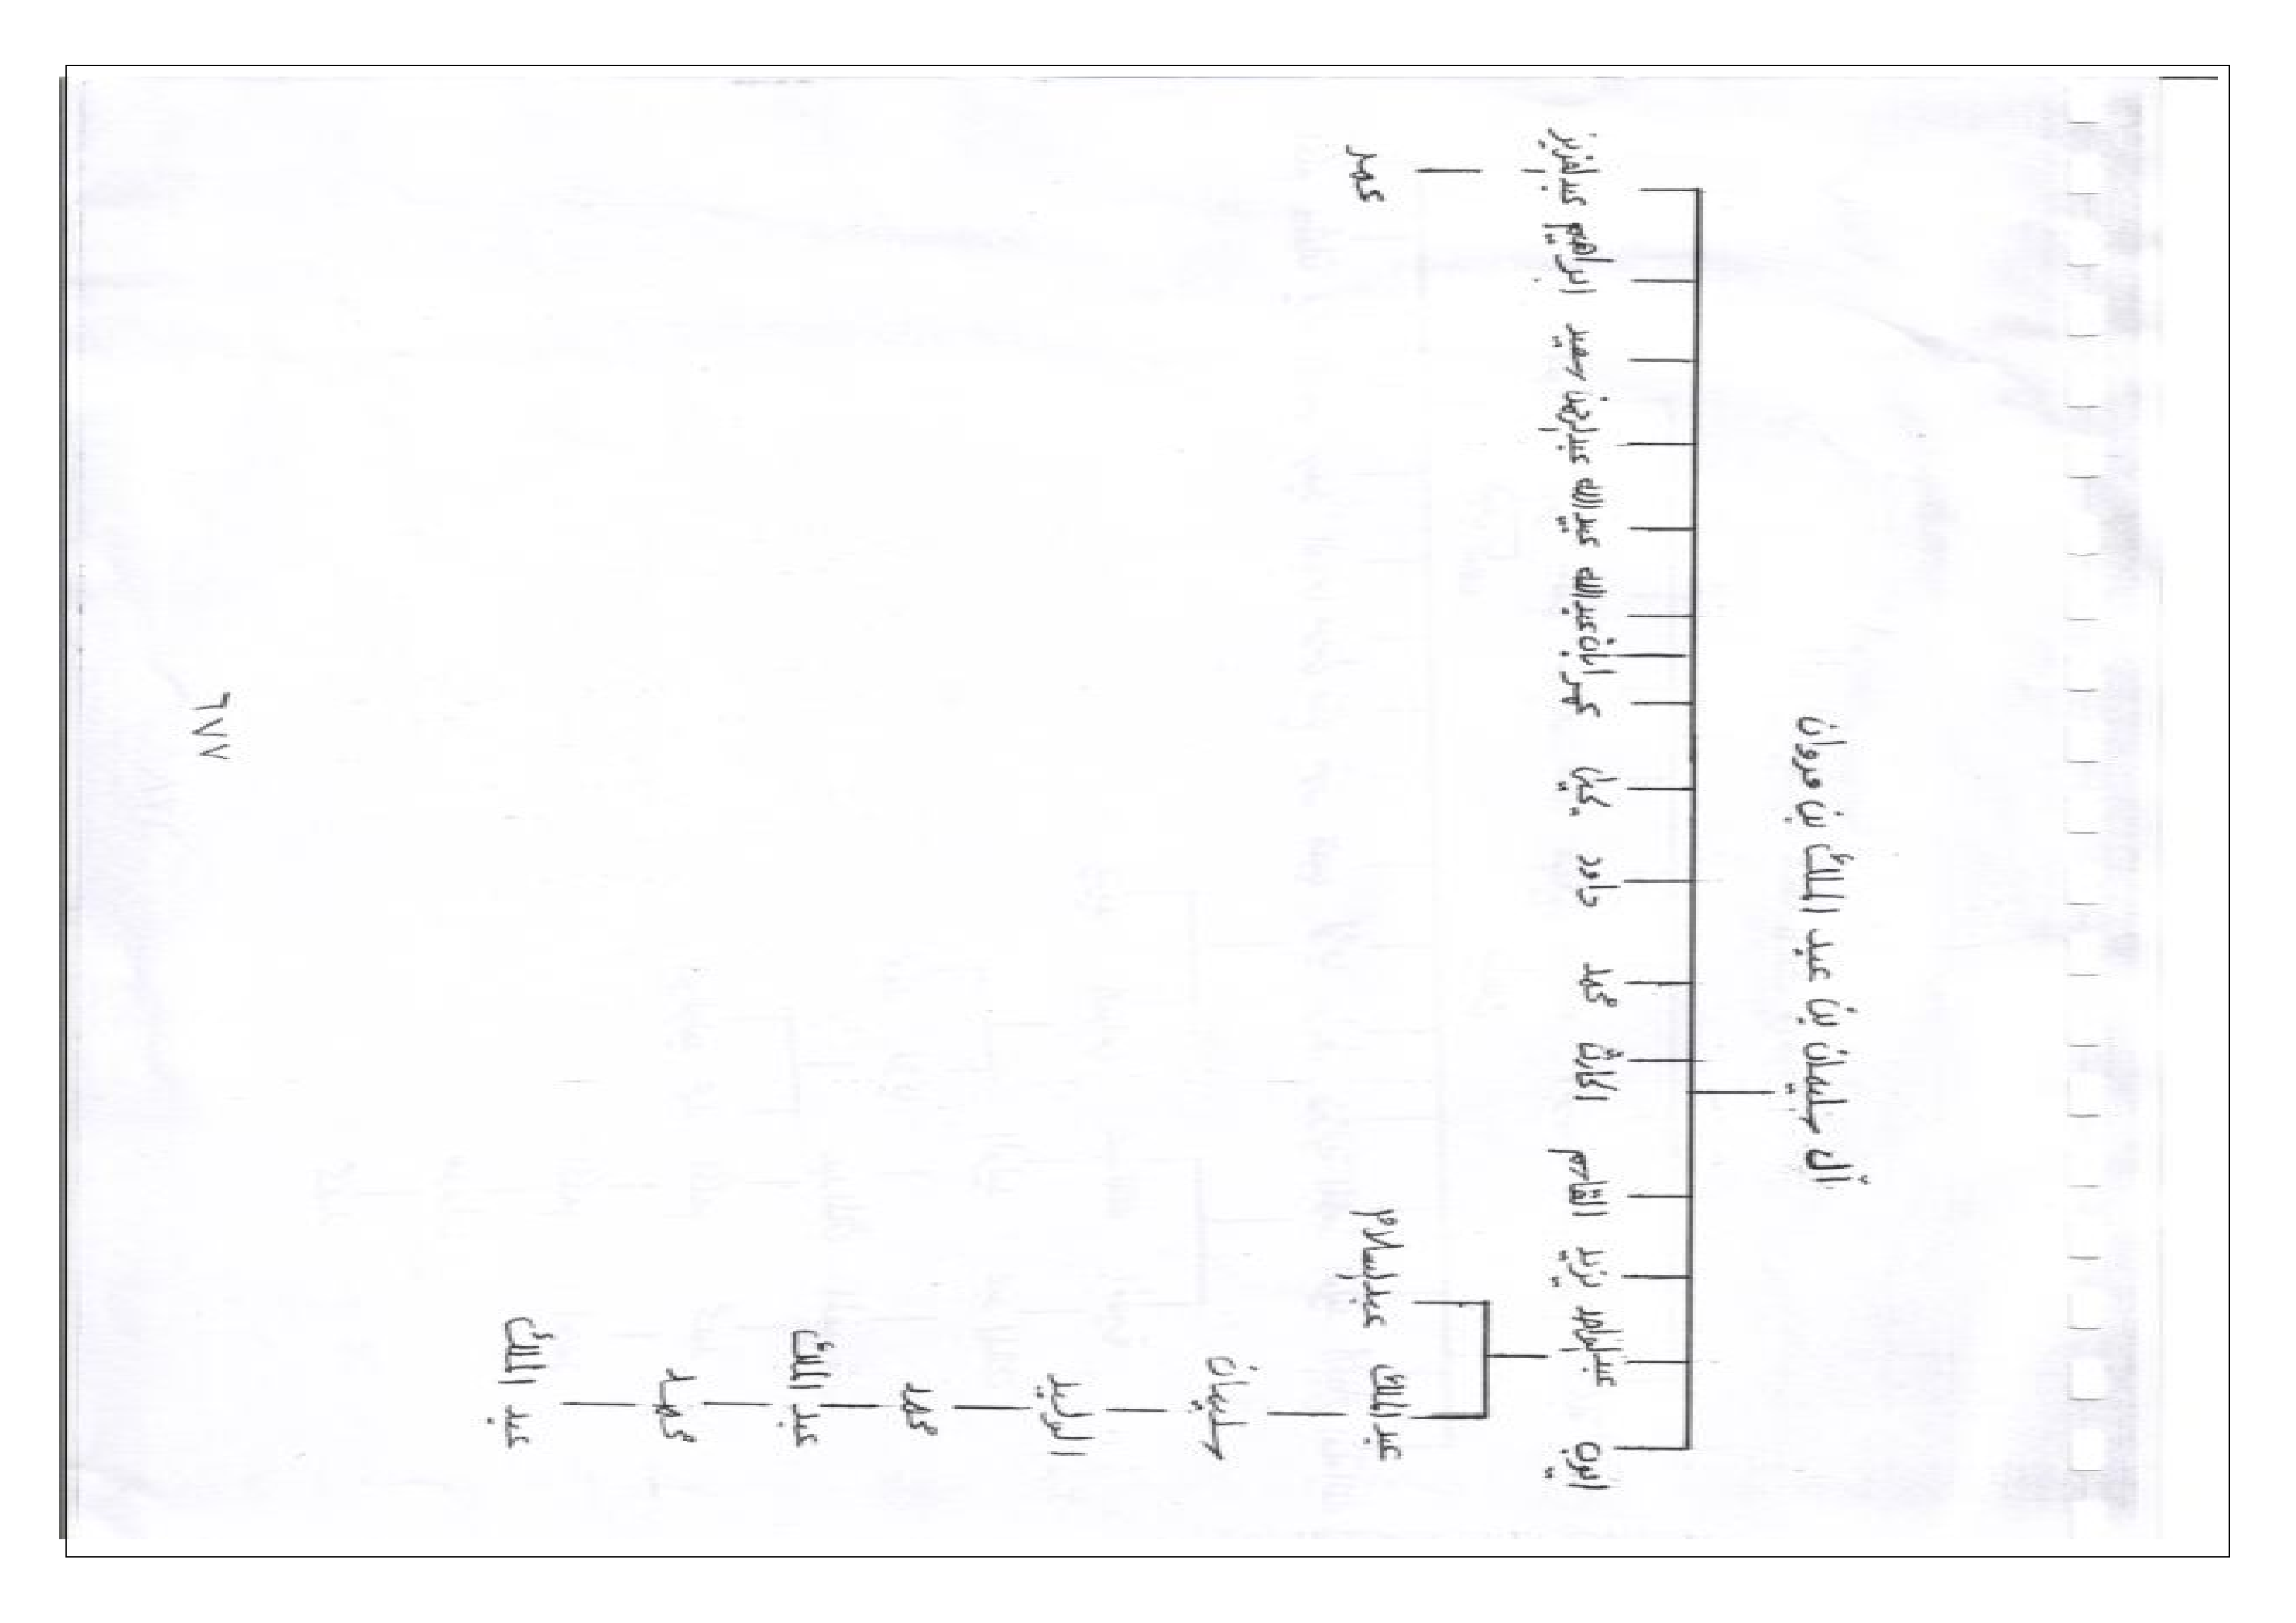 آل سليمان بن عبد الملك بن مروان
ايوب عبدالواحد يزيد القاسم الحارث محمد داود يحيى عمر أبان عبيدالله عبد الله عبدالرحمن سعيد ابراهيم عبدالعزيز
عبد الملك عبدالسلام عمر
سليمان
الوليد
محمد
عبد الملك
محمد
عبد الملك
٦٧٧